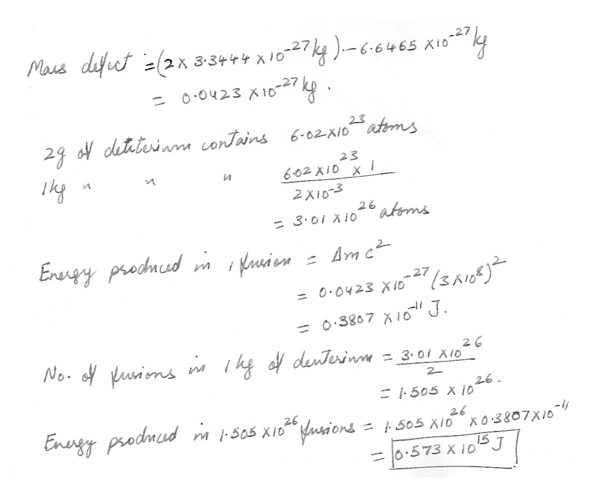 Mass defect = (2 x 3.3444 x 10^-27 kg) - 6.6465 x 10^-27 kg
= 0.0423 x 10^-27 kg.
2g of deuterium contains 6.02x10^23 atoms
1kg " " " 6.02 x 10^23 x 1
2 x 10^-3
= 3.01 x 10^26 atoms
Energy produced in 1 fusion = Δm c^2
= 0.0423 x 10^-27 (3 x 10^8)^2
= 0.3807 x 10^-11 J.
No. of fusions in 1 kg of deuterium = 3.01 x 10^26
2
= 1.505 x 10^26.
Energy produced in 1.505 x 10^26 fusions = 1.505 x 10^26 x 0.3807 x 10^-11
= 0.573 x 10^15 J